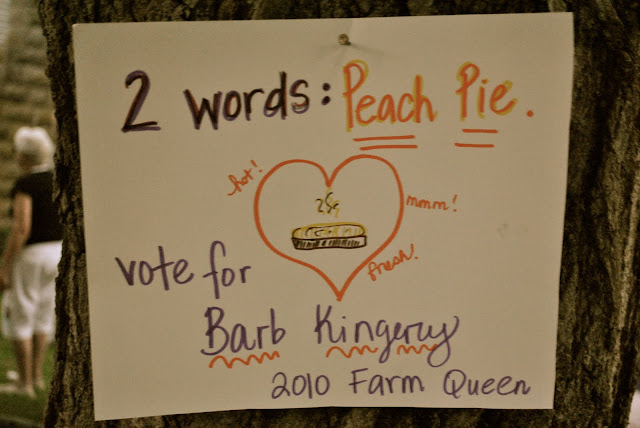 2 words: Peach Pie.
hot!
mmm!
fresh!
vote for
Barb Kingery
2010 Farm Queen